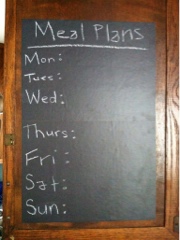 Meal Plans
Mon:
Tues:
Wed:
Thurs:
Fri:
Sat:
Sun: